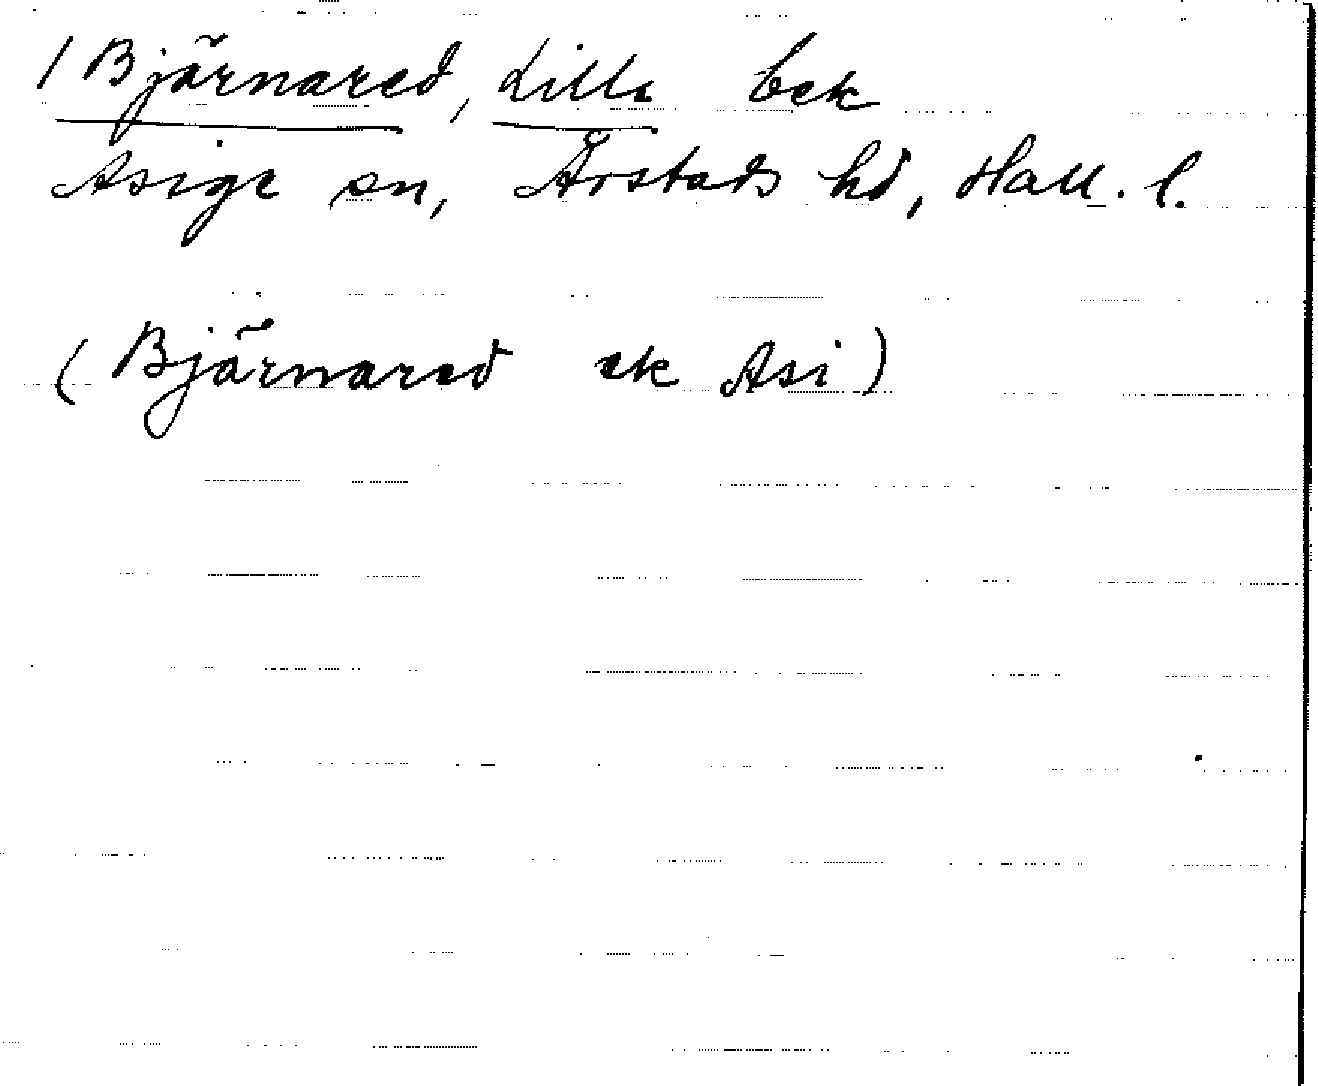 / Bjärnared, Lilla bek
Asige sn, Årstads hd, Hall. l.
(Bjärnared ek Asi)